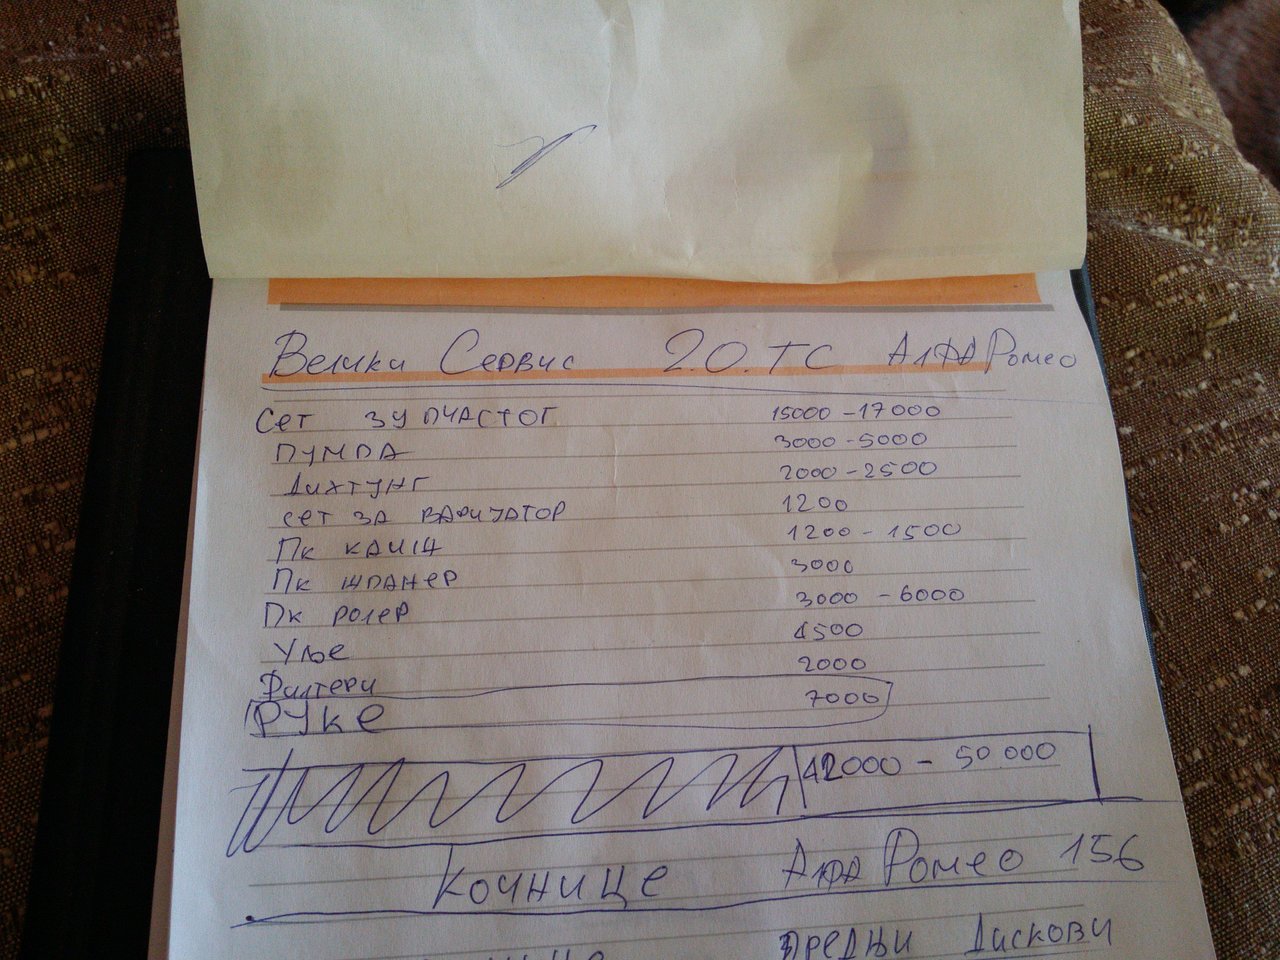 Велики Сервис 2.0. ТС Алфа Ромео
Сет зупчастог 15000 - 17000
Пумпа 3000 - 5000
Дихтунг 2000 - 2500
сет за варијатор 1200
Пк каиш 1200 - 1500
Пк шпанер 3000
Пк ролер 3000 - 6000
Уље 4500
Филтери 2000
Руке 7000
42000 - 50 000
Кочнице Алфа Ромео 156
предњи дискови